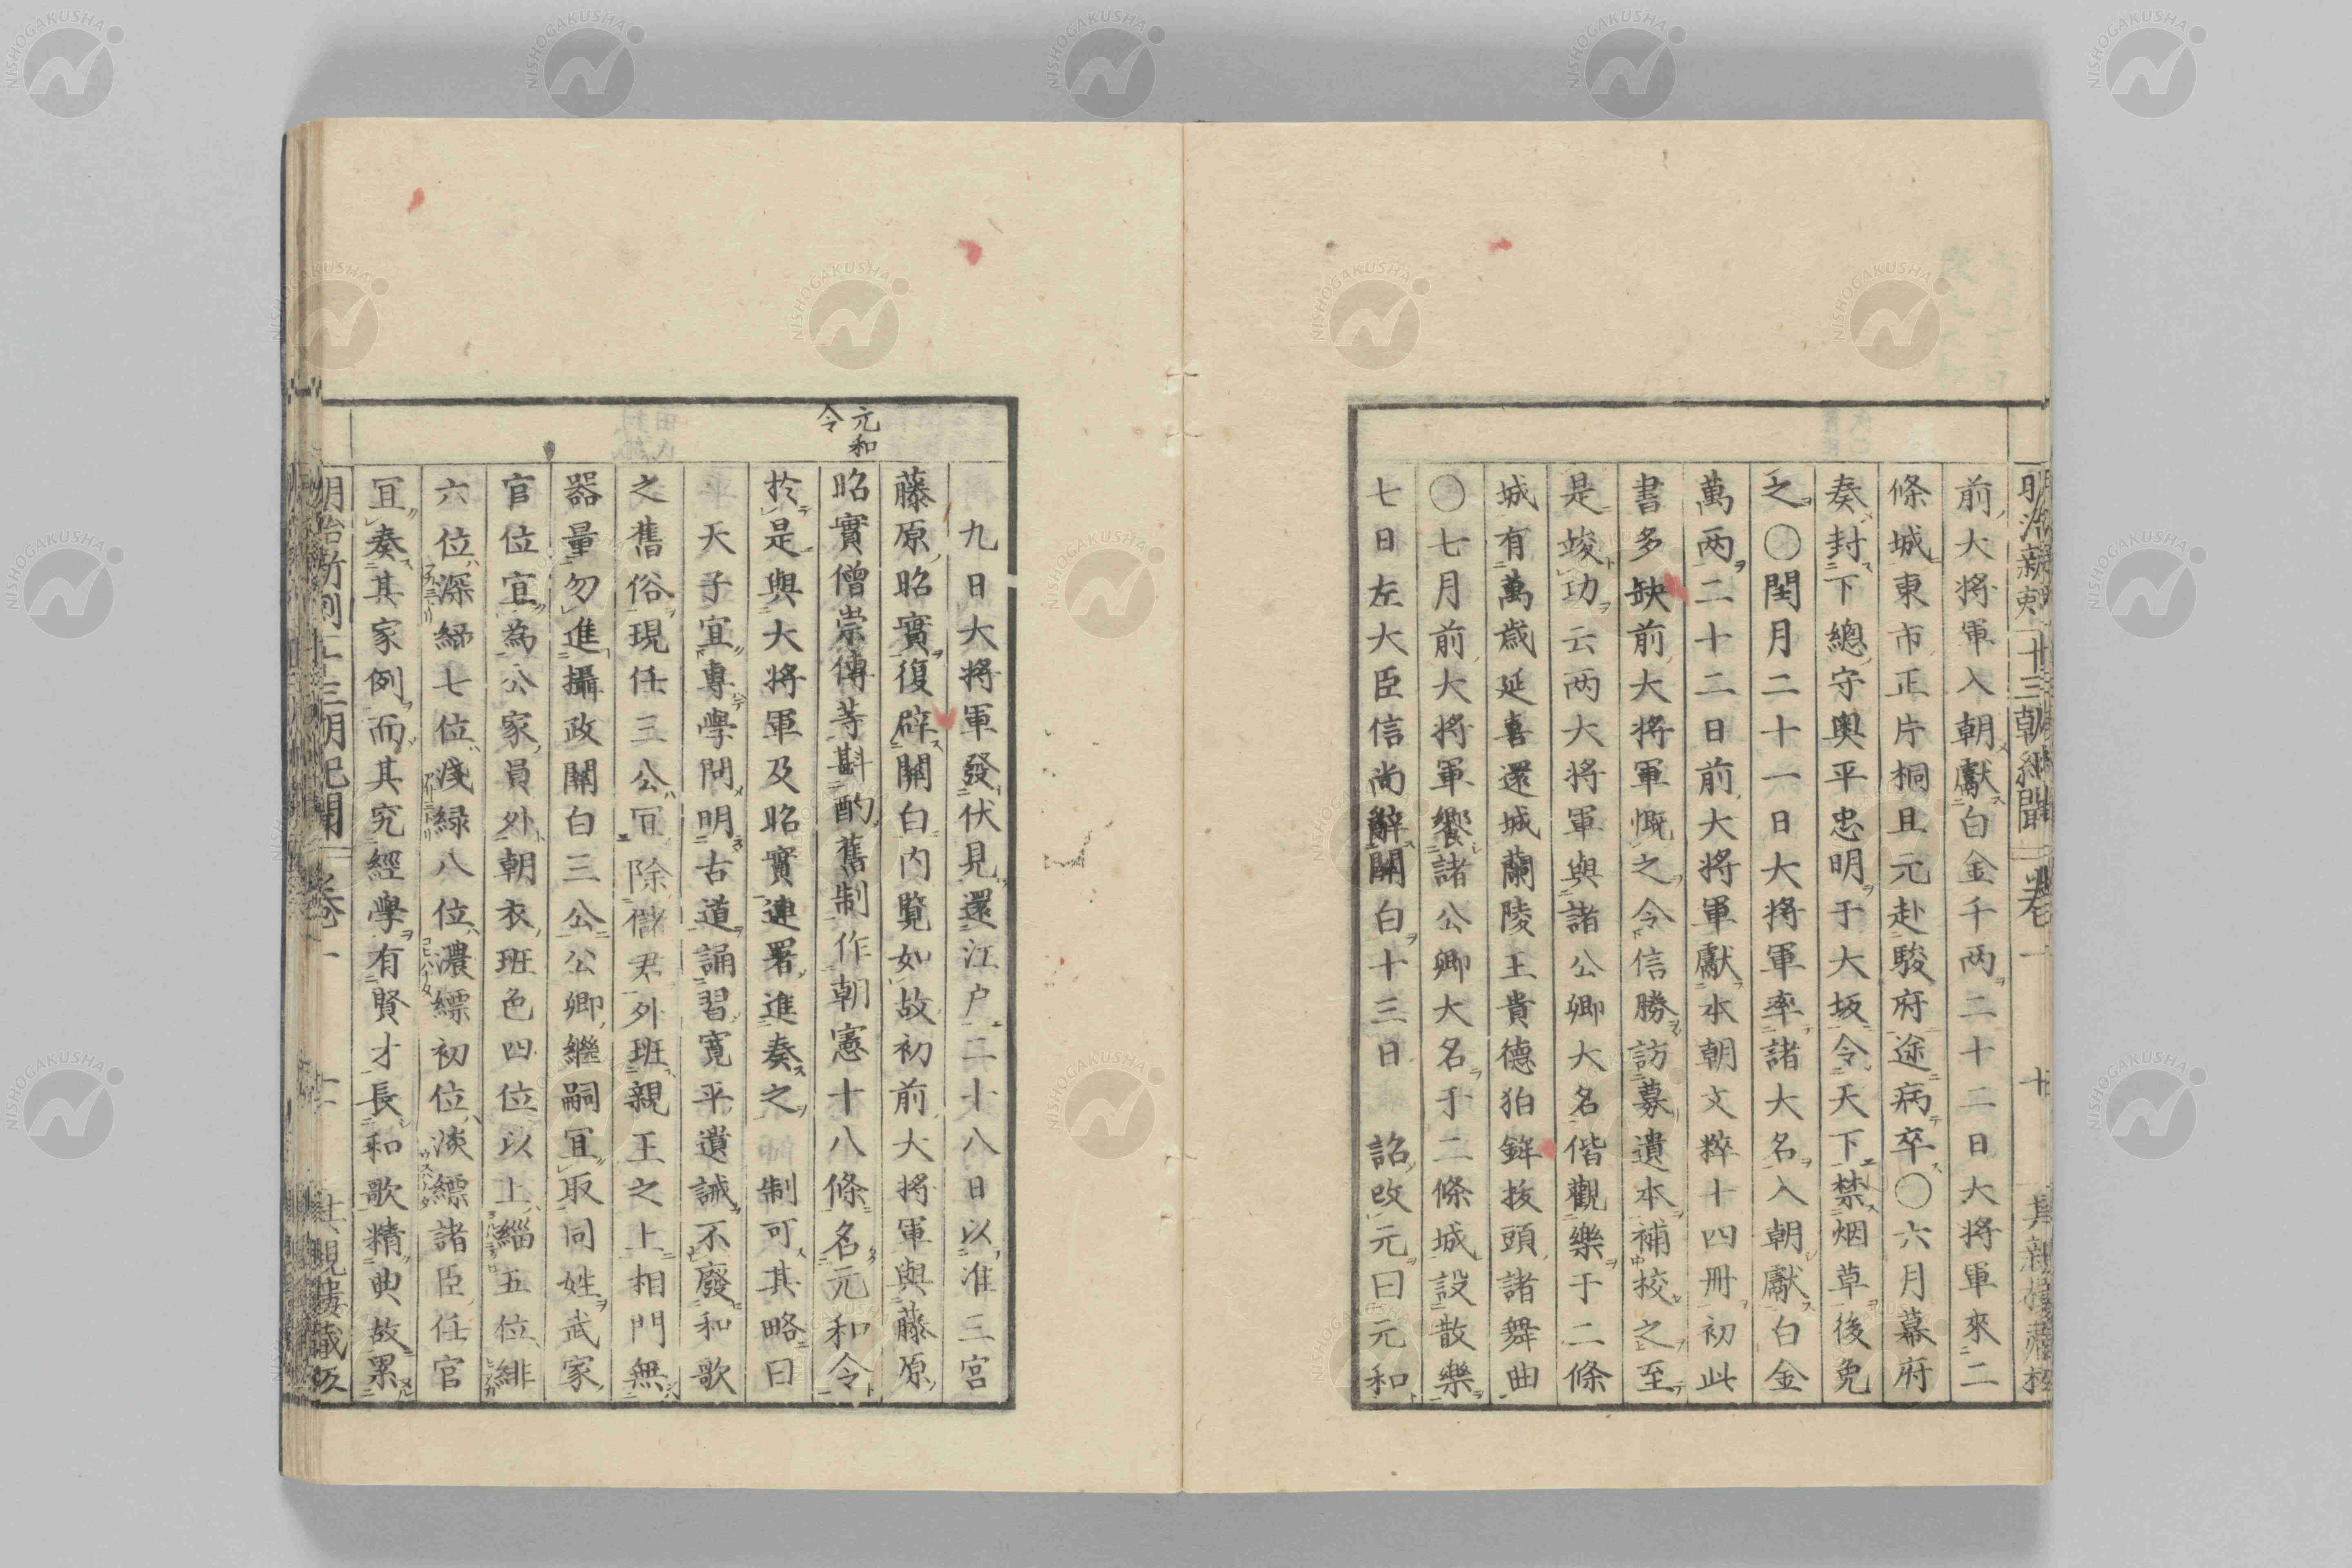 明治新刻 十三朝紀聞 卷一 十 其親樓藏板
前大将軍入朝獻白金千兩二十二日大将軍來二
條城東市正片桐且元赴駿府途病卒〇六月幕府
奏封下總守奥平忠明于大坂令天下禁烟草後免
之〇閏月二十一日大将軍率諸大名入朝獻白金
萬兩二十二日前大将軍獻本朝文粹十四冊初此
書多缺前大将軍慨之令信勝訪募遺本補校之至
是竣功云兩大将軍與諸公卿大名偕觀樂于二條
城有萬歳延喜還城蘭陵王貴德狛鉾抜頭諸舞曲
〇七月前大将軍饗諸公卿大名于二條城設散樂
七日左大臣信尚辭關白十三日 詔改元曰元和
元和令
九日大将軍發伏見還江戸二十八日以准三宮
藤原昭實復辟關白内覽如故初前大将軍與藤原
昭實僧崇傳等斟酌舊制作朝憲十八條名元和令
於是與大将軍及昭實連署進奏之 制可其略曰
天子宜專學問明古道誦習寛平遺誡不廢和歌
之舊俗現任三公宜除儲君外班親王之上相門無
器量勿進攝政關白三公公卿繼嗣宜取同姓武家
官位宜為公家員外朝衣班色四位以上緇五位緋
六位深緑七位淺緑八位濃縹初位淡縹諸臣任官
宜奏其家例而其究經學有賢才長和歌精典故累
明治新刻 十三朝紀聞 卷一 其親樓藏板